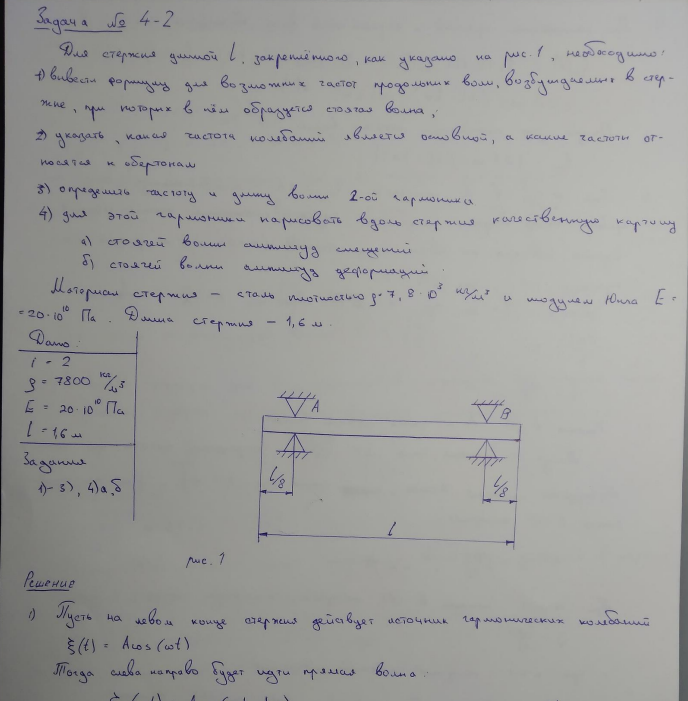 Задача № 4-2
Для стержня длиной l, закреплённого, как указано на рис. 1, необходимо:
1) вывести формулу для возможных частот продольных волн, возбуждаемых в стер-
жне, при которых в нём образуется стоячая волна;
2) указать, какая частота колебаний является основной, а какие частоты от-
носятся к обертонам
3) определить частоту и длину волны 2-ой гармоники
4) для этой гармоники нарисовать вдоль стержня качественную картину
а) стоячей волны амплитуд смещений
б) стоячей волны амплитуд деформаций.
Материал стержня – сталь плотностью ρ=7,8·10³ кг/м³ и модулем Юнга E=
=20·10¹⁰ Па. Длина стержня – 1,6 м.
Дано:
i = 2
ρ = 7800 кг/м³
E = 20·10¹⁰ Па
l = 1,6 м
Задания
1)-3), 4)а,б
A
B
l/8
l/8
l
рис. 1
Решение
1) Пусть на левом конце стержня действует источник гармонических колебаний
ξ(t) = Acos(ωt)
Тогда слева направо будет идти прямая волна: